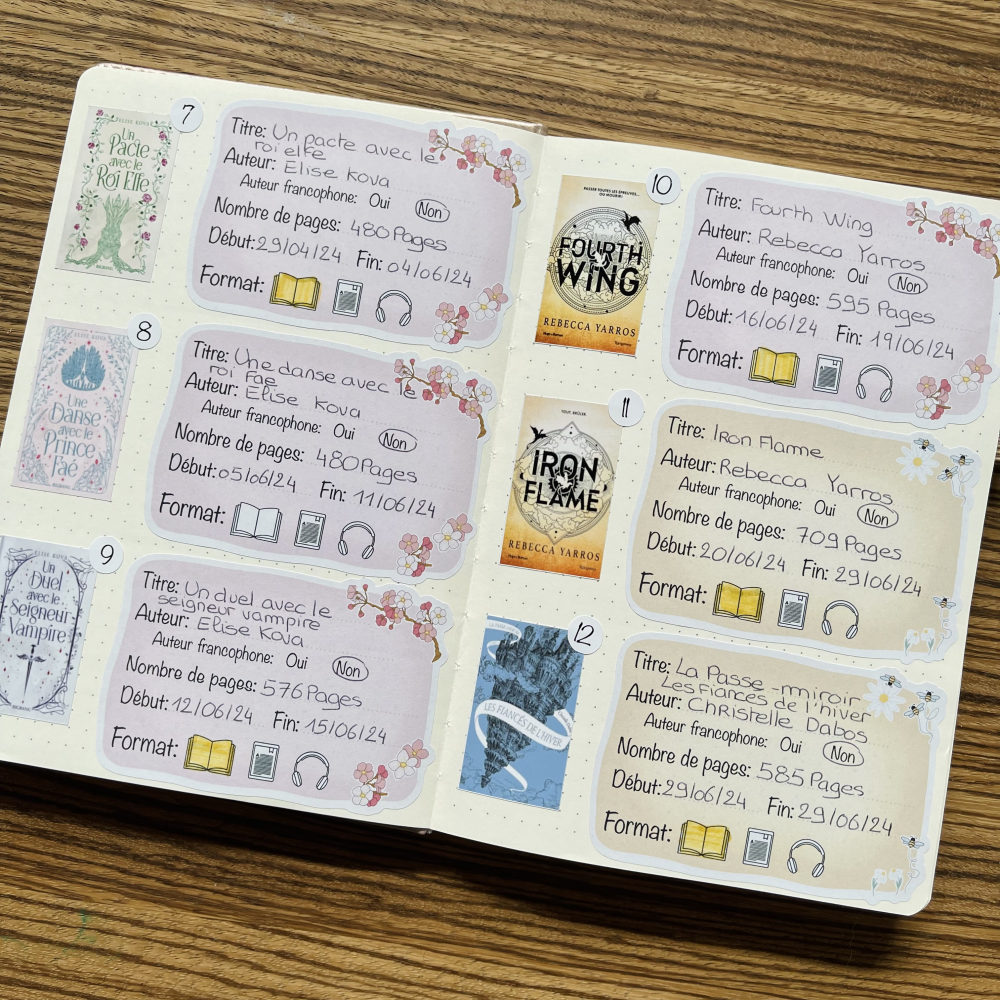 7
ELISE KOVA
Un
Pacte
avec le
Roi Elfe
Titre: Un pacte avec le
roi elfe
Auteur: Elise Kova
Auteur francophone: Oui Non
Nombre de pages: 480 Pages
Début: 29/04/24 Fin: 04/06/24
Format:
8
ELISE KOVA
Une
Danse
avec le
Prince
Faé
Titre: Une danse avec le
roi fae
Auteur: Elise Kova
Auteur francophone: Oui Non
Nombre de pages: 480 Pages
Début: 05/06/24 Fin: 11/06/24
Format:
9
ELISE KOVA
Un
Duel
avec le
Seigneur
Vampire
Titre: Un duel avec le
seigneur vampire
Auteur: Elise Kova
Auteur francophone: Oui Non
Nombre de pages: 576 Pages
Début: 12/06/24 Fin: 15/06/24
Format:
10
PASSER TOUTES LES ÉPREUVES...
OU MOURIR!
FOURTH
WING
REBECCA YARROS
Titre: Fourth Wing
Auteur: Rebecca Yarros
Auteur francophone: Oui Non
Nombre de pages: 595 Pages
Début: 16/06/24 Fin: 19/06/24
Format:
11
TOUT BRÛLER
IRON
FLAME
REBECCA YARROS
Titre: Iron Flame
Auteur: Rebecca Yarros
Auteur francophone: Oui Non
Nombre de pages: 709 Pages
Début: 20/06/24 Fin: 29/06/24
Format:
12
LES FIANCÉS DE L'HIVER
Titre: La Passe-miroir
Les Fiancés de l'hiver
Auteur: Christelle Dabos
Auteur francophone: Oui Non
Nombre de pages: 585 Pages
Début: 29/06/24 Fin: 29/06/24
Format: